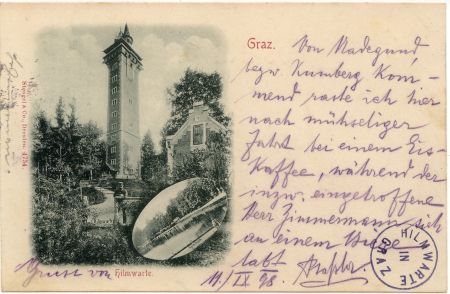 Graz.
Von Radegund,
bezw. Kumberg Kom-
mend raste ich hier
nach mühseliger
Fahrt bei einem Eis-
Kaffee, während der
inzw. eingetroffene
Herr Zimmermann sich
an einem
labt
11./IX 98.
HILMWARTE
IN
GRAZ
Gruss von
Hilmwarte.
Stengel & Co., Dresden 4734.